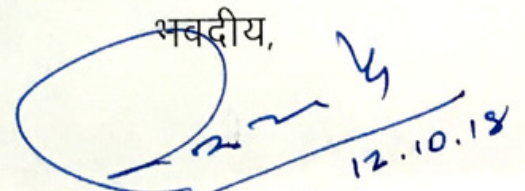 भवदीय,
12.10.18